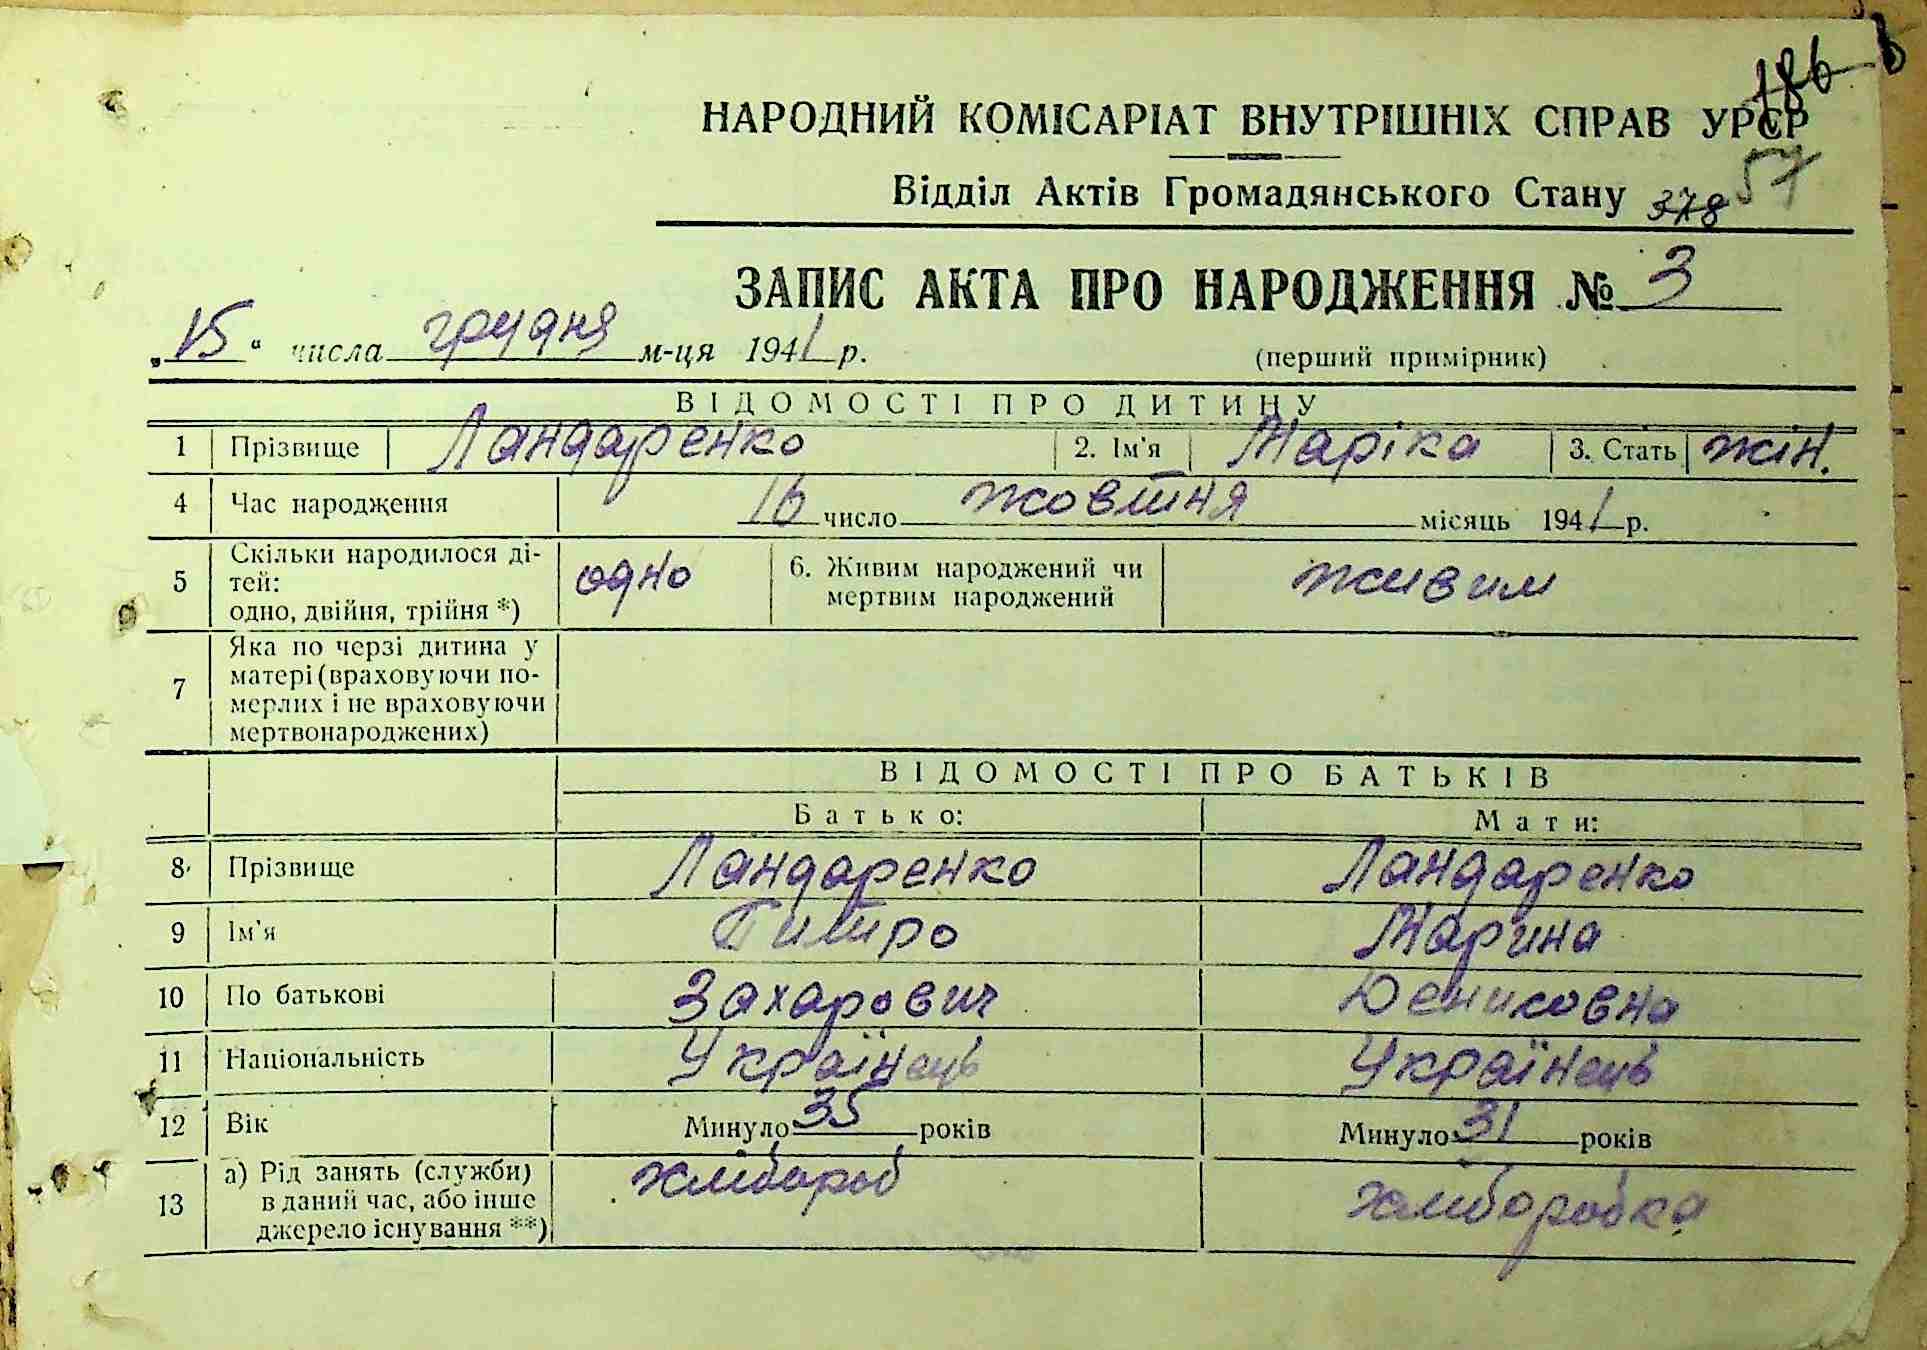 186
НАРОДНИЙ КОМІСАРІАТ ВНУТРІШНІХ СПРАВ УРСР
Відділ Актів Громадянського Стану 378 57
ЗАПИС АКТА ПРО НАРОДЖЕННЯ № 3
„15“ числа грудня м-ця 1941 р. (перший примірник)
ВІДОМОСТІ ПРО ДИТИНУ
1 Прізвище Ландаренко 2. Ім'я Маріка 3. Стать жін.
4 Час народження 16 число жовтня місяць 1941 р.
5 Скільки народилося ді-
тей:
одно, двійня, трійня *) одно 6. Живим народжений чи
мертвим народжений живим
7 Яка по черзі дитина у
матері (враховуючи по-
мерлих і не враховуючи
мертвонароджених)
ВІДОМОСТІ ПРО БАТЬКІВ
Батько: Мати:
8 Прізвище Ландаренко Ландаренко
9 Ім'я Марина
10 По батькові Захарович Денисовна
11 Національність Українець Українець
12 Вік Минуло 35 років Минуло 31 років
13 а) Рід занять (служби)
в даний час, або інше
джерело існування **) хлібороб хлiборобка